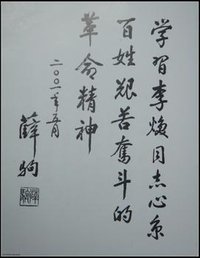 学習李焕同志心系
百姓艰苦奮斗的
革命精神
二〇〇一年五月
薛驹